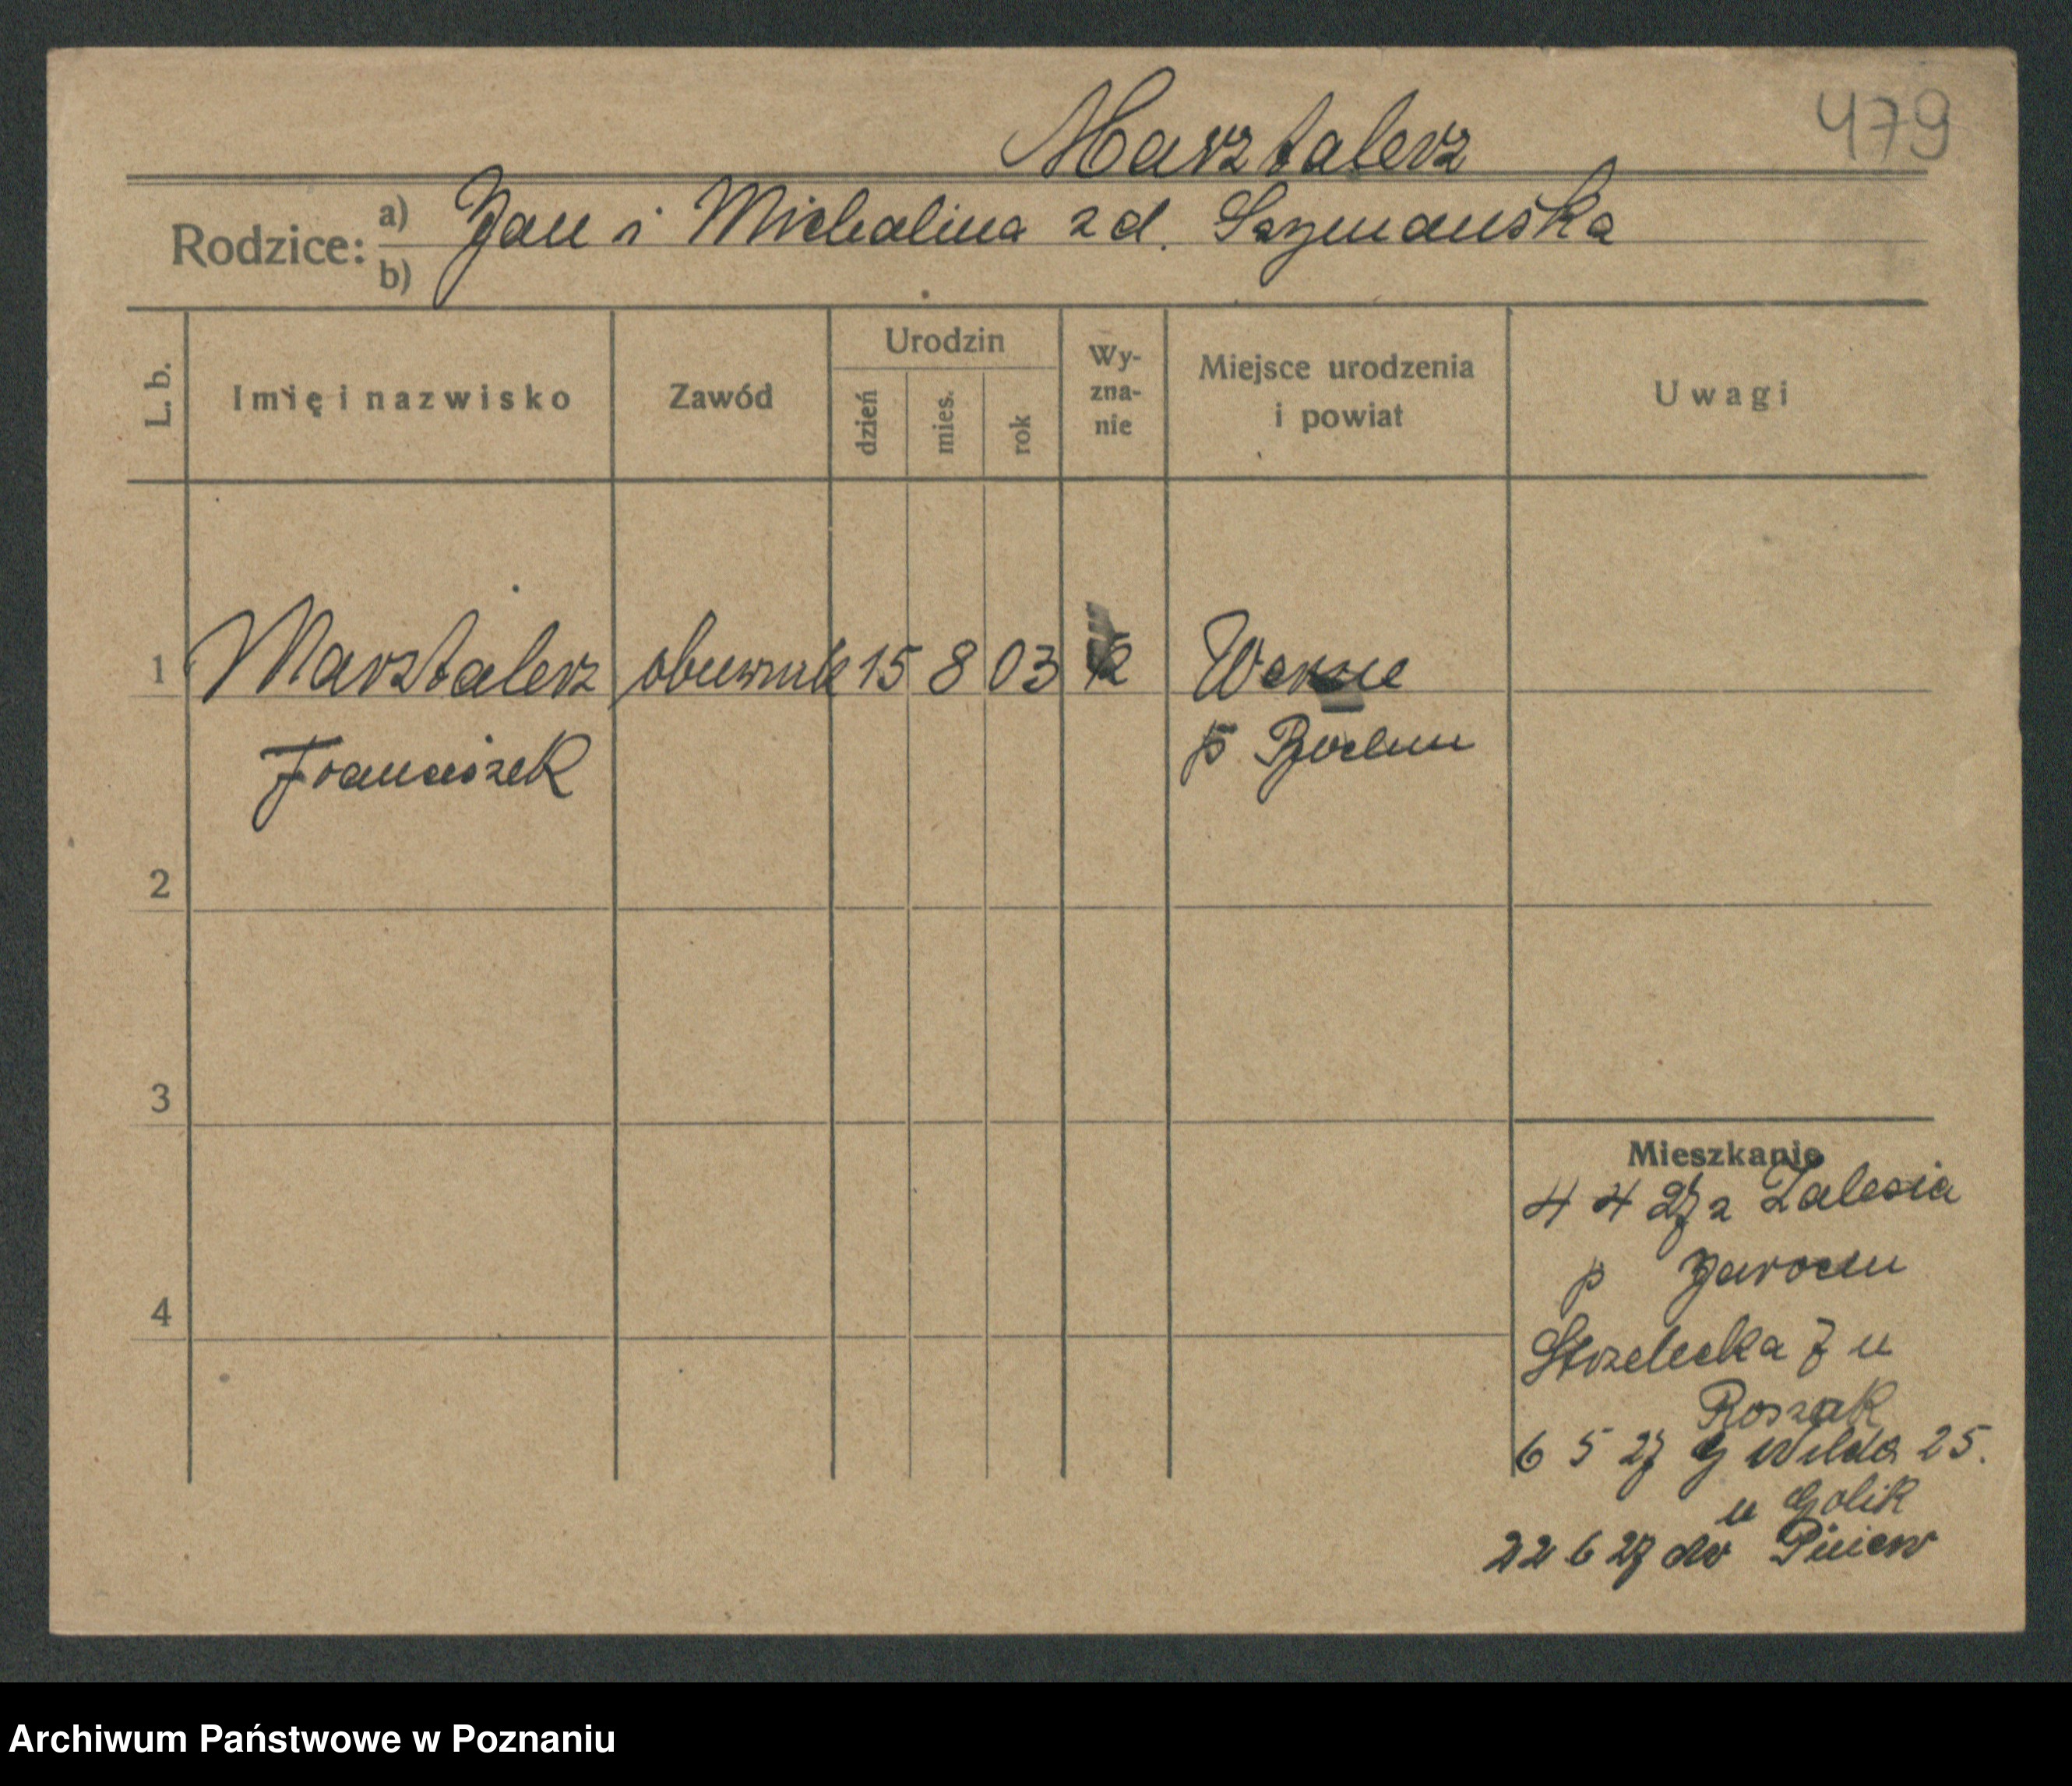 479
Marztalerz
Rodzice: a) Jan i Michalina z d. Szymańska
b)
L. b. Imię i nazwisko Zawód Urodzin dzień mies. rok Wy-zna-nie Miejsce urodzenia i powiat Uwagi
1 Marsztalerz obuwnik 15 8 03 k Werne
Franciszek p Bochum
2
3
4
Mieszkanie
4 4 27 z Zalesia
p Jarocin
Strzelecka 7 u
Roszak
6 5 27 G Wilda 25.
u Golik
22 6 27 do Pniew
Archiwum Państwowe w Poznaniu